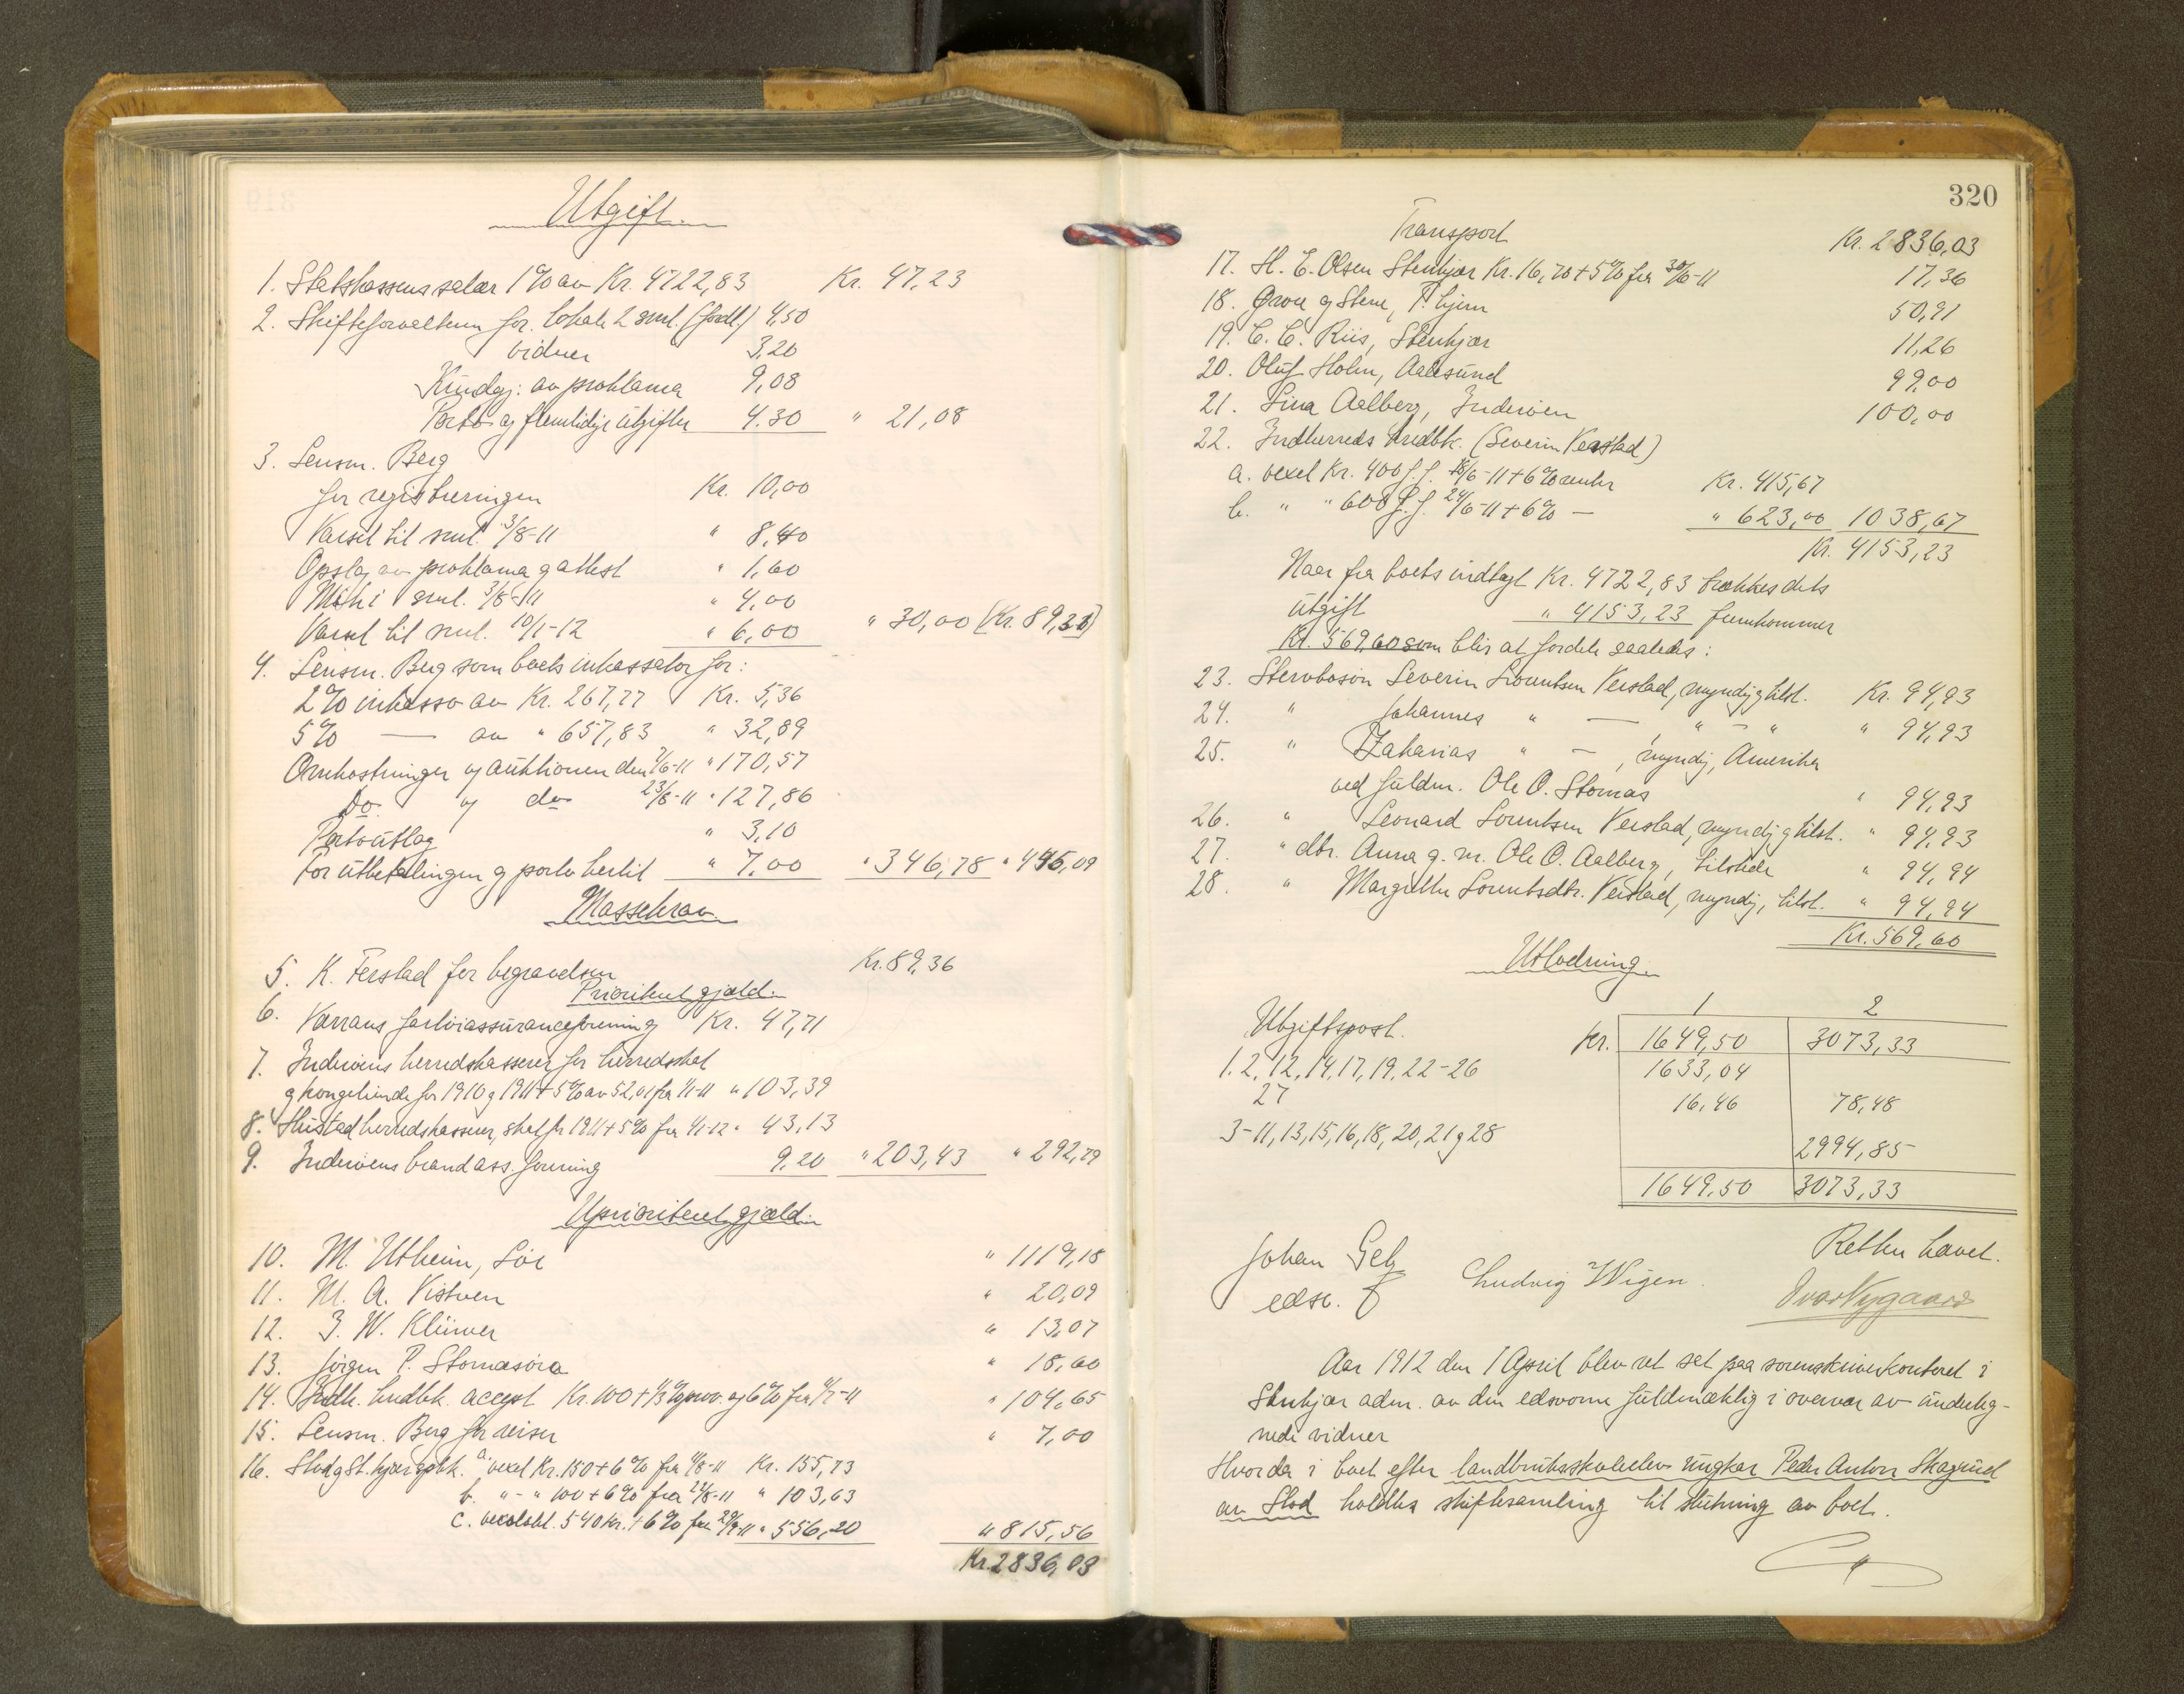 Utgift.
1. Statskassens salær 1% av Kr. 4722,83 Kr. 47,23
2. Skifteforvalteren for lokale 2 sml. (fordl.) 4,50
vidner 3,20
Kundgj: av proklama 9,08
Porto og fremtidige utgifter 4.30 " 21,08
3. Lensm. Berg
for registreringen Kr. 10,00
Varsel til sml. 3/8-11 " 8,40
Opslag av proklama g attest " 1,60
Møte i sml. 3/8-11 " 4,00
Varsel til sml. 10/1-12 " 6,00 " 30,00 (Kr. 89,31)
4. Lensm. Berg som boets inkassator for:
2% inkasso av Kr. 267,77 Kr. 5,36
5% — av " 657,83 " 32,89
Omkostninger v auktionen den 2/6-11 " 170,57
Do v do 23/8-11 " 127,86
Portoutlag " 3,10
For utbetalingen g porto hertil " 7,00 " 346,78 " 445,09
Massekrav.
5. K. Ferstad for begravelsen Kr. 89,36
Prioritert gjæld.
6. Værrans sjøassuranceforening Kr. 47,71
7. Inderøens herredskasserer for herredsskat
g kongetiende for 1910 g 1911 + 5% av 52,01 fra 1/1-11 " 103,39
8. Hustad herredskasserer, skat for 1911 + 5% fra 1/1-12 " 43,13
9. Inderøens brandass. forening 9,20 " 203,43 " 292,79
Uprioritert gjæld.
10. M. Utheim, Sør " 1119,18
11. M. A. Kistven " 20,09
12. J. W. Klüwer " 13,07
13. Jørgen P. Stornæsøra " 18,60
14. Indh. kredbk. accept Kr. 100 + 1/3% prov. og 6% fra 4/7-11 " 104,65
15. Lensm. Berg for reiser " 7,00
16. Stod g St.kjær spbk. a. vexel Kr. 150 + 6% fra 11/8-11 Kr. 155,73
b. " - " 100 + 6% fra 22/8-11 " 103,63
c. vexelobl. 540 kr. + 6% fra 29/9-11 " 556,20 " 815,56
Kr. 2836,03
320
Transport Kr. 2836,03
17. H. E. Olsen Stenkjær Kr. 16,70 + 5% fra 30/6-11 17,36
18. Grove g Stene, T.hjem 50,91
19. C. C. Riis, Stenkjær 11,26
20. Oluf Holm, Aalesund 99,00
21. Lina Aalberg, Inderøen 100,00
22. Indherreds kredbk. (Severin Verstad)
a. vexel Kr. 400 f.f. 18/6-11 + 6% renter Kr. 415,67
b. " " 600 f.f. 24/6-11 + 6% — " 623,00 1038,67
Kr. 4153,23
Naar fra boets indtægt Kr. 4722,83 trækkes dets
utgift " 4153,23 fremkommer
Kr. 569,60 som blir at fordele saaledes:
23. Stervbosøn Severin Lorentsen Verstad, myndig g tilst. Kr. 94,93
24. " Johannes " — " - " " 94,93
25. " Zakarias " — , myndig, Amerika
ved fuldm. Ole O. Stornæs " 94,93
26. " Leonard Lorentsen Verstad, myndig g tilst. " 94,93
27. " dtr. Anna g. m. Ole O. Aalberg, tilstede " 94,94
28. " Margrethe Lorentsdtr. Verstad, myndig, tilst. " 94,94
Kr. 569,60
Utlodning.
1 2
Utgiftspost. Kr. 1649,50 3073,33
1. 2, 12, 14, 17, 19, 22-26 1633,04
27 16,46 78,48
3-11, 13, 15, 16, 18, 20, 21 g 28 2994,85
1649,50 3073,33
Retten hævet.
Johan Gelz
edsv. f
Ludvig Wigen.
Ivar Nygaard
Aar 1912 den 1 April blev ret sat paa sorenskriverkontoret i
Stenkjær adm. av den edsvorne fuldmægtig i overvær av underteg-
nede vidner
Hvorda i boet efter landbruksskoleelev ungkar Peder Anton Skagrud
av Stod holdtes skiftesamling til slutning av boet.